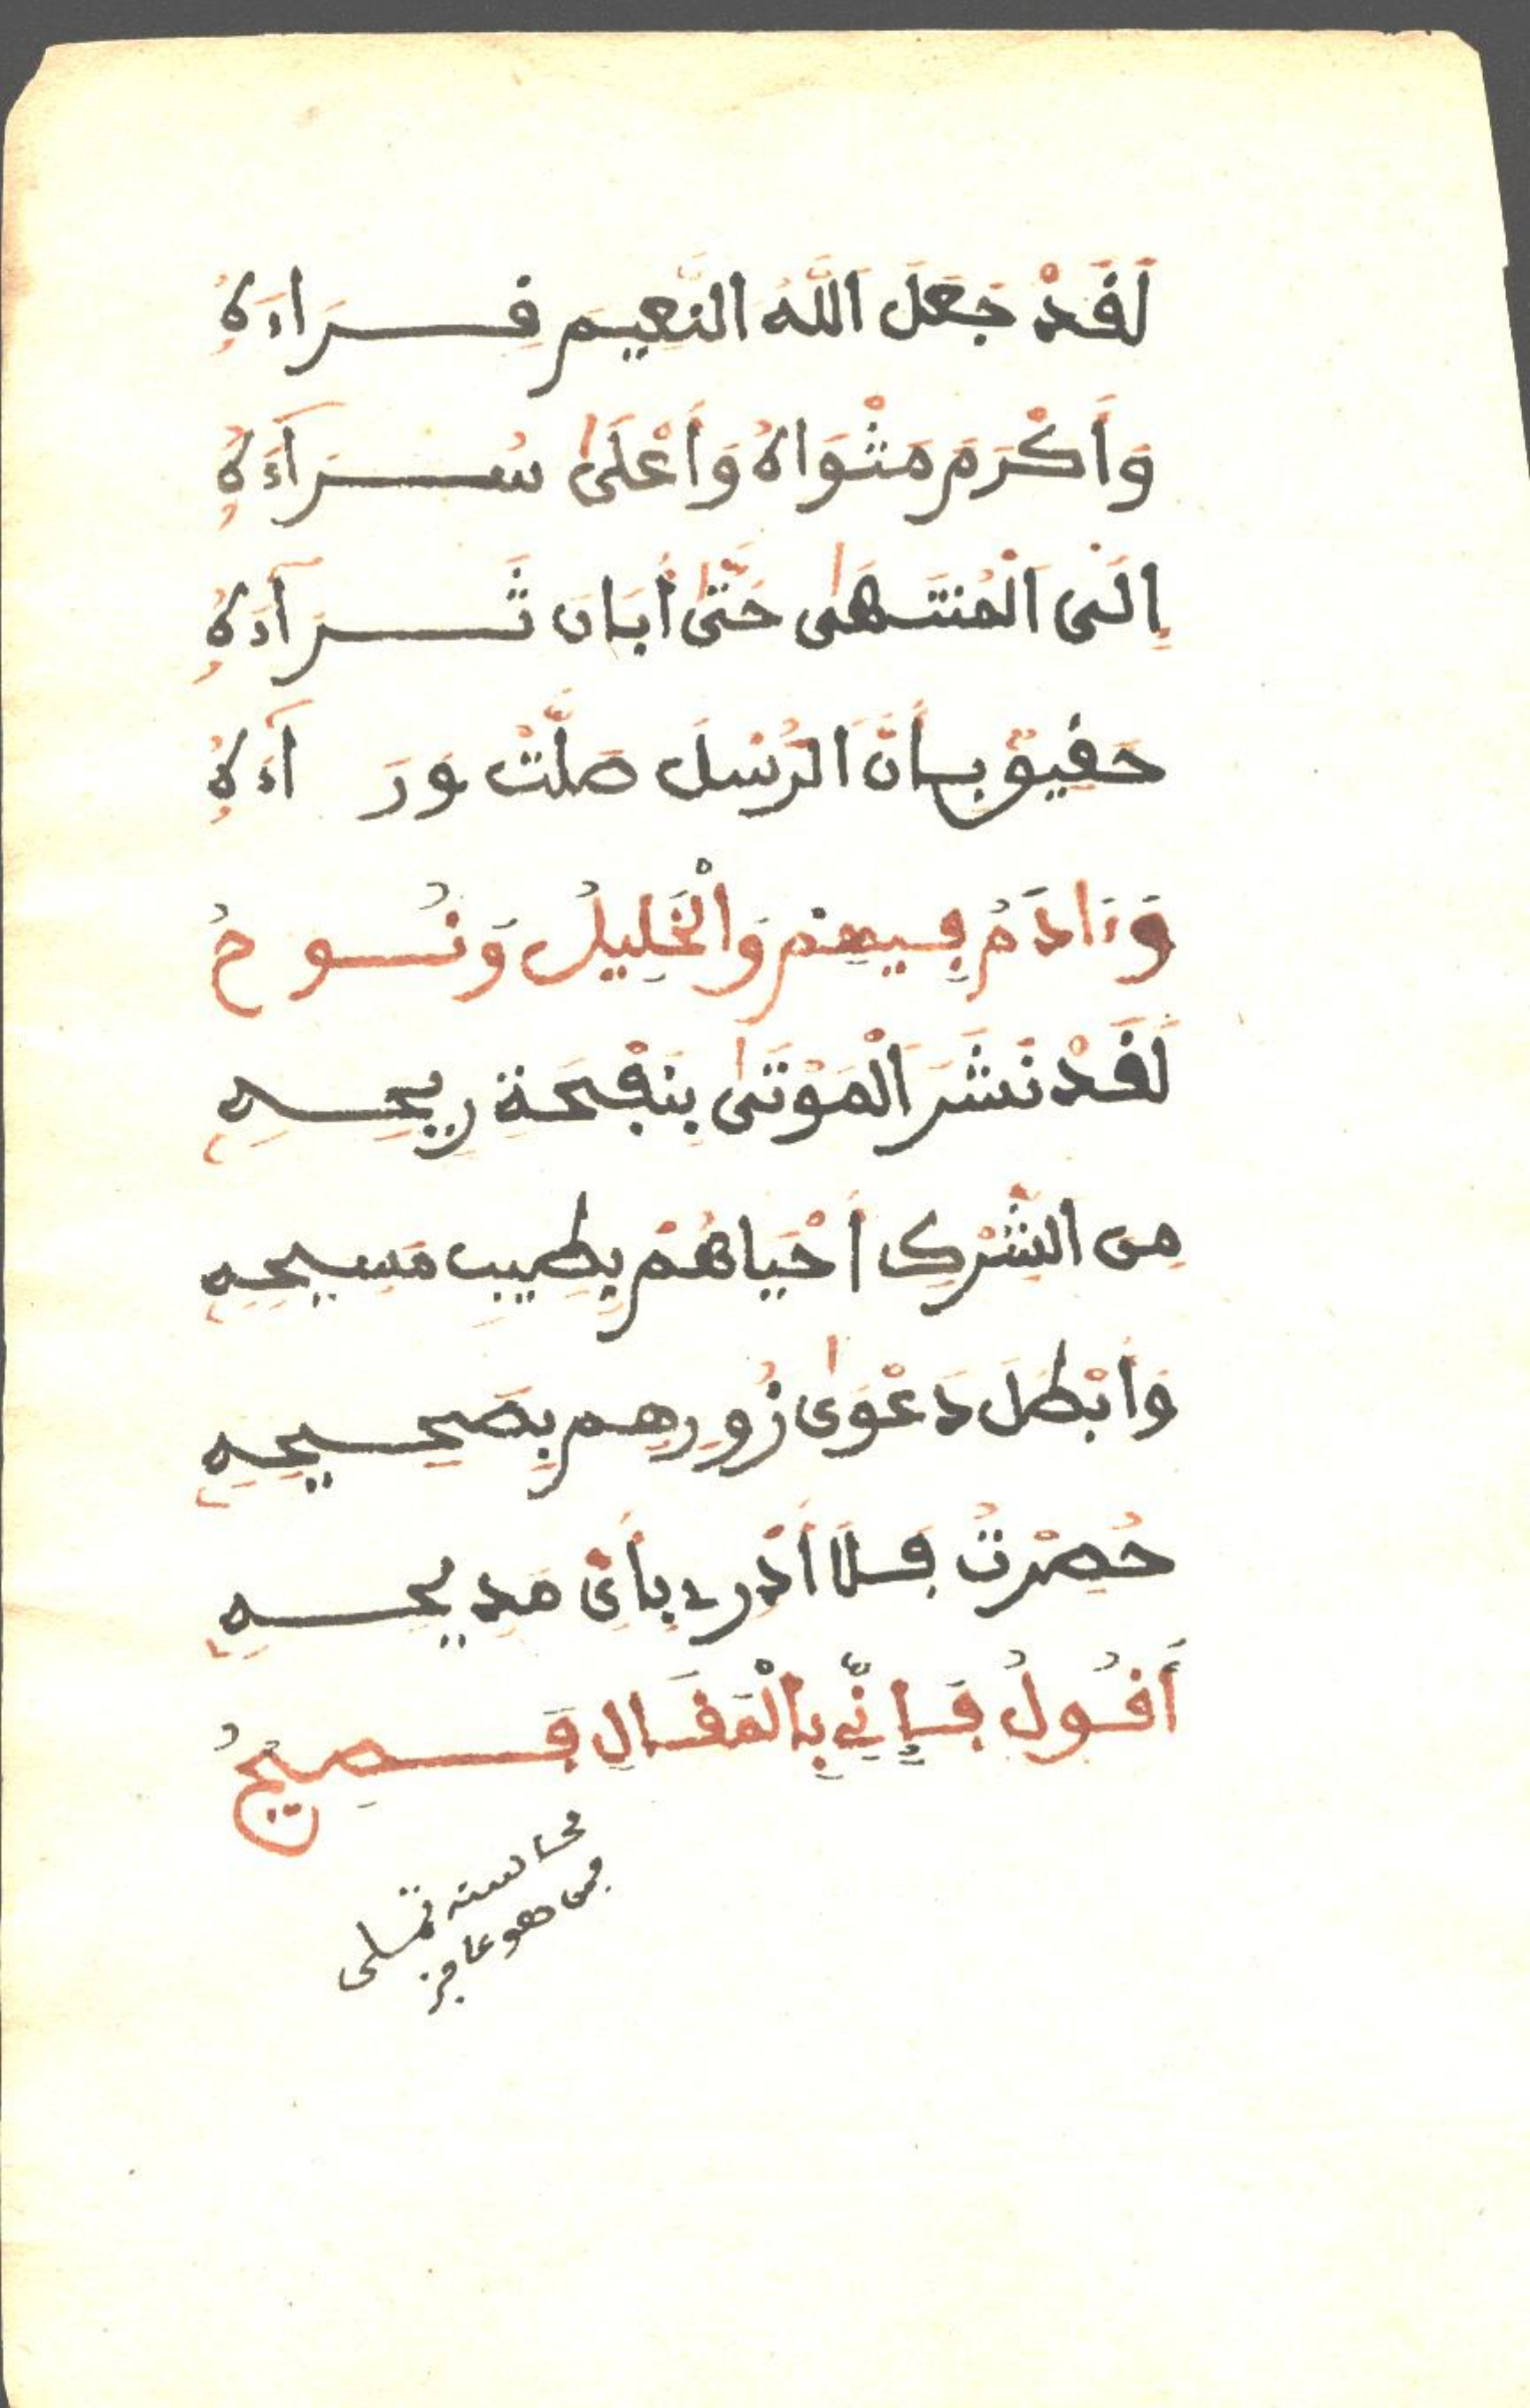 لَقَدْ جَعَلَ اَللَّهُ النَّعِيمَ قِرَاءَهُ
وَأَكْرَمَ مَثْوَاهُ وَأَعْلَىٰ سُرَآءَهُ
إِلَى اَلْمُنتَهَىٰ حَتَّىٰ أَبَانَ ثَرَآءَهُ
حَقِيقٌ بِأَنَّ اَلرُّسْلَ صَلَّتْ وَرَآءَهُ
وَءَادَمُ فِيهِمْ وَالْخَلِيلُ وَنُوحُ
لَقَدْ نَشَرَ اَلْمَوْتَىٰ بِنَفْحَةِ رِيحِهِ
مِنَ الشِّرْكِ أَحْيَاهُمْ بِطِيبِ مَسِيحِهِ
وَأَبْطَلَ دَعْوَىٰ زُورِهِم بِصَحِيحِهِ
حُصِرْتُ فَلَا أَدْرِے بِأَىِّ مَدِيحِهِ
أَقُولُ فَإِنِّے بِالْمَقَالِ فَصِيحُ
محاسنه تملى
فمن هو عاجز